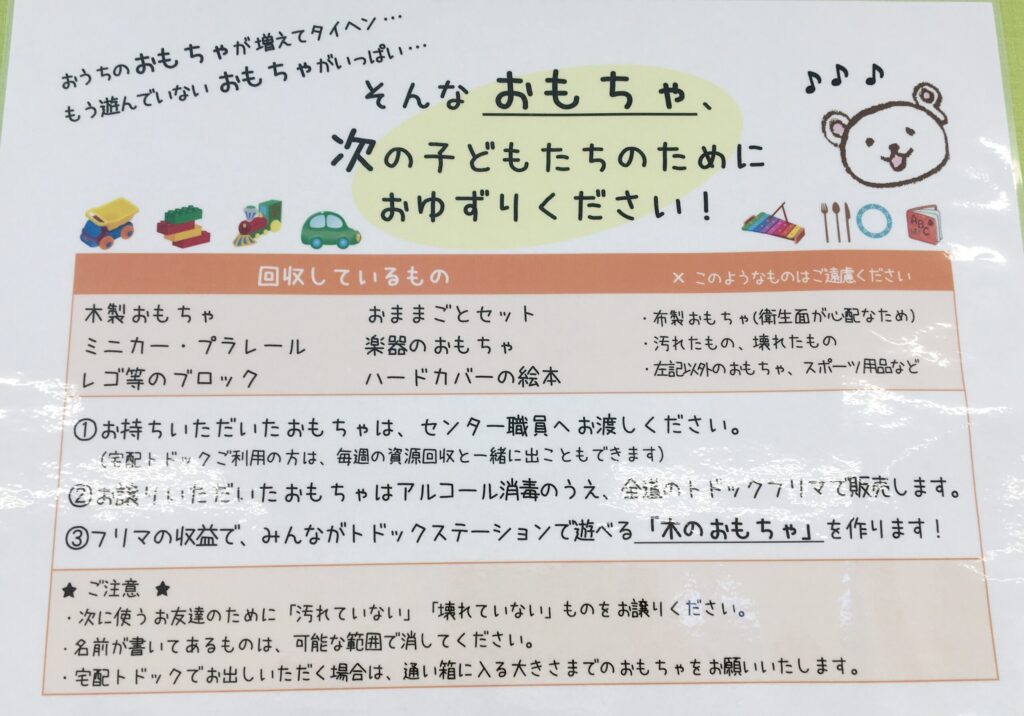 おうちのおもちゃが増えてタイヘン…
もう遊んでいないおもちゃがいっぱい…
そんなおもちゃ、
次の子どもたちのために
おゆずりください！
ABC
回収しているもの
× このようなものはご遠慮ください
木製おもちゃ
ミニカー・プラレール
レゴ等のブロック
おままごとセット
楽器のおもちゃ
ハードカバーの絵本
・布製おもちゃ(衛生面が心配なため)
・汚れたもの、壊れたもの
・左記以外のおもちゃ、スポーツ用品など
①お持ちいただいたおもちゃは、センター職員へお渡しください。
(宅配トドックご利用の方は、毎週の資源回収と一緒に出こともできます)
②お譲りいただいたおもちゃはアルコール消毒のうえ、全道のトドックフリマで販売します。
③フリマの収益で、みんながトドックステーションで遊べる「木のおもちゃ」を作ります！
★ ご注意 ★
・次に使うお友達のために「汚れていない」「壊れていない」ものをお譲りください。
・名前が書いてあるものは、可能な範囲で消してください。
・宅配トドックでお出しいただく場合は、通い箱に入る大きさまでのおもちゃをお願いいたします。